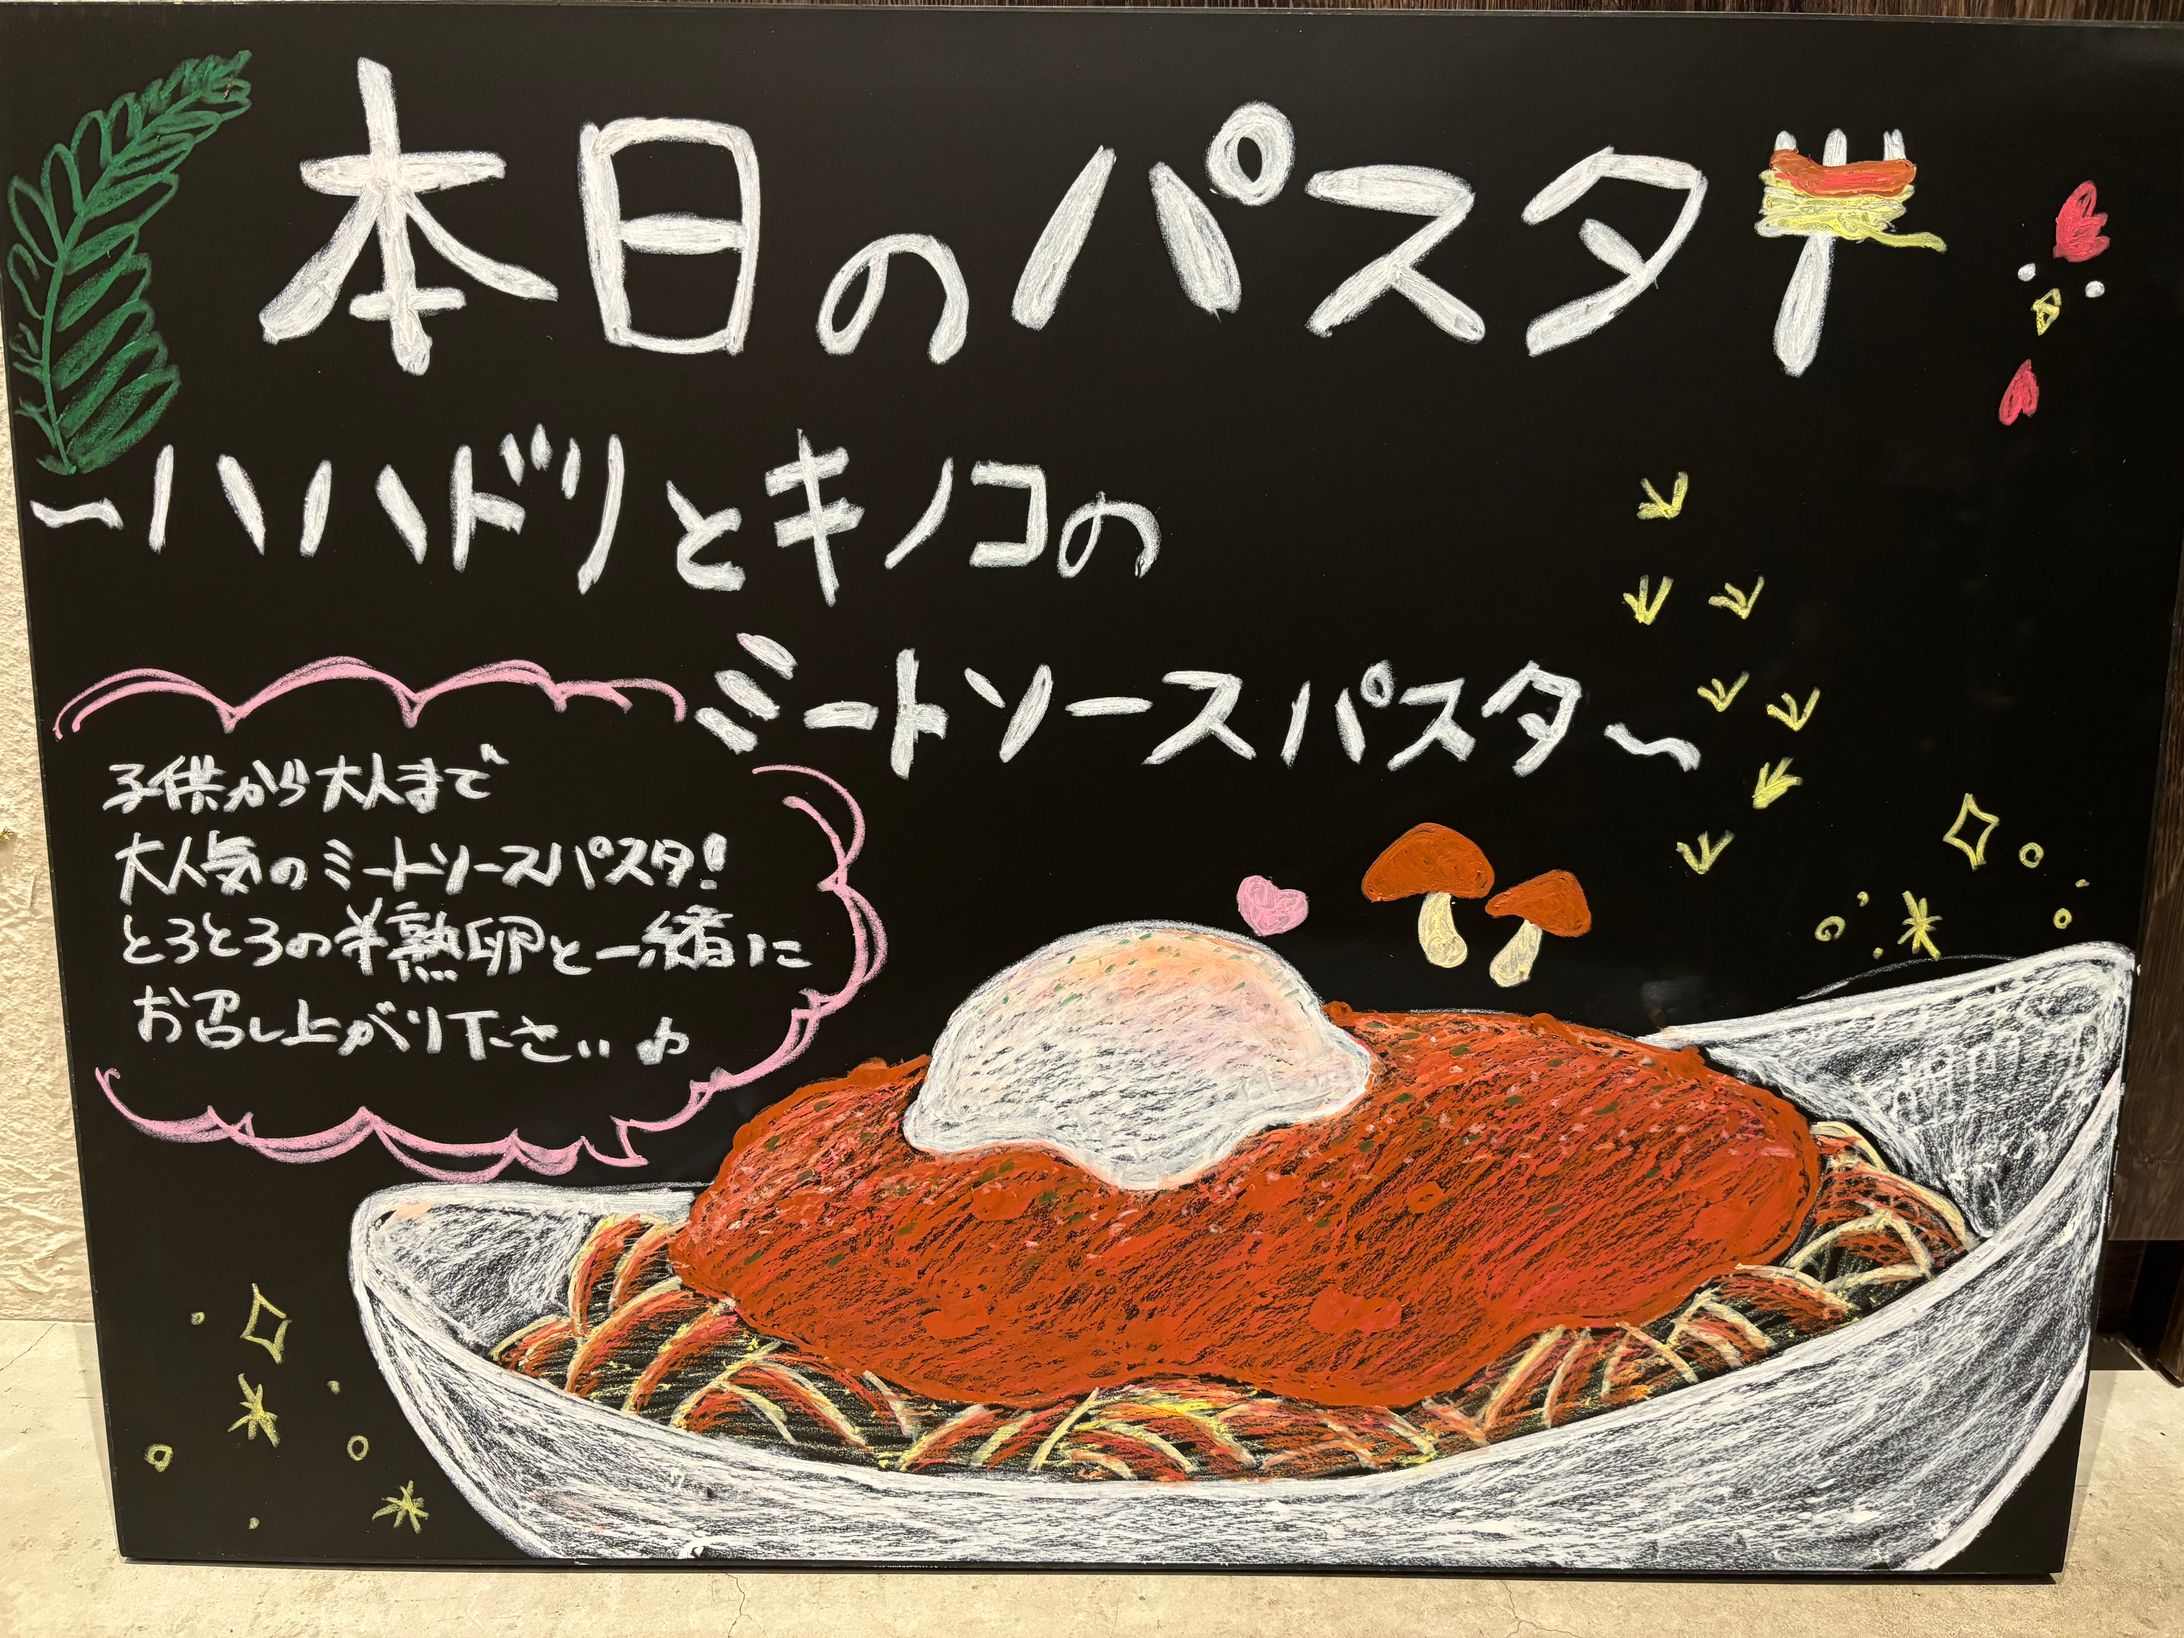 本日のパスタ
~ハハドリとキノコの
ミートソースパスタ~
子供から大人まで
大人気のミートソースパスタ!
とろとろの半熟卵と一緒に
お召し上がり下さい♪